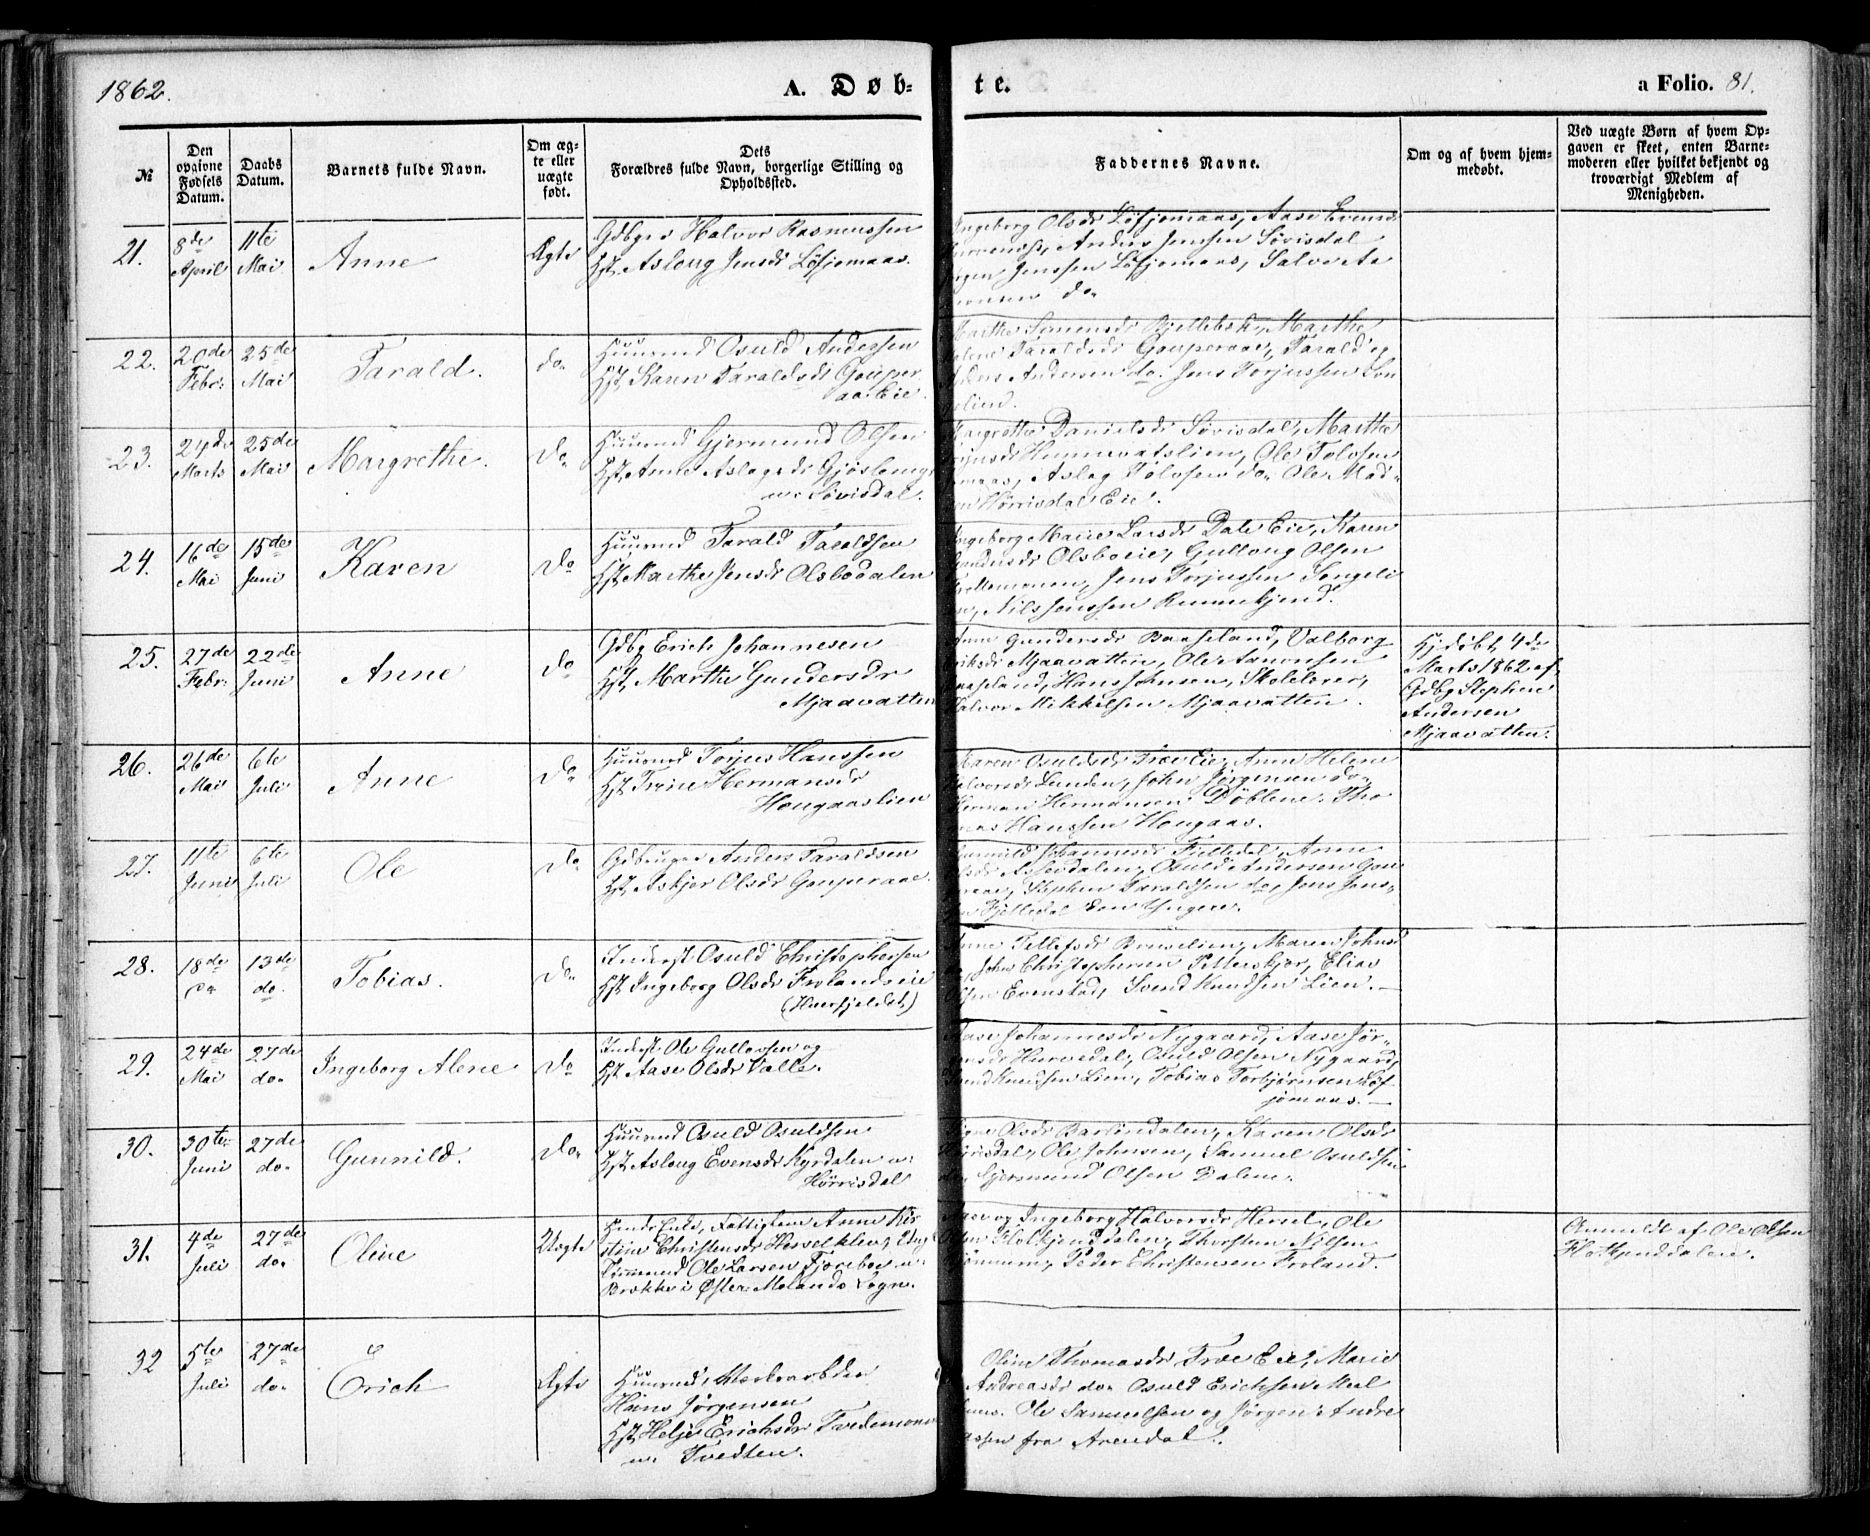 1862.
A. Døb-
te.
a Folio. 81.
№
Den opgivne Fødsels Datum.
Daabs Datum.
Barnets fulde Navn.
Om ægte eller uægte født.
Dets Forældres fulde Navn, borgerlige Stilling og Opholdssted.
Faddernes Navne.
Om og af hvem hjemmedøbt.
Ved uægte Børn af hvem Opgaven er skeet, enten Barnemoderen eller hvilket bekjendt og troværdigt Medlem af Menigheden.
21.
8de April
11te Mai
Anne
Ægte
Gdbger Halvor Rasmussen
Hst. Aslaug Jensdr Løfjomaas.
Ingeborg Olsdr Løfjomaas, Aase Evensdr
Anders Jensen Søvisdal
Jenssen Løfjomaas, Salve Aa
do
22.
20de Febr:
25de Mai
Tarald.
do
Huusmd Osuld Andersen
Hst. Karen Taraldsdr Gauper
aa Eie.
Marthe
Taraldsdr Gauperaae, Tarald og
Andersen do. Jens Torjussen Son
gelien.
23.
24de Marts
25de Mai
Margrethe.
Do
Huusmd Gjermund Olsen
Hst. Anne Aslagsdr
Søvisdal.
Margrethe Danielsdr Søvisdal, Marthe
Ole Tolvsen
Aslag Tolvsen do. Ole Mad-
Hørrisdal Eie.
24.
16de Mai
15de Juni
Karen
Do
Huusmd Tarald Taraldsen
Hst. Marthe Jensdr Olsbodalen
Ingeborg Marie Larsdr Dale Eie, Karen
Olsboeie, Gullaug Olsen
Jens Torjussen Songeli
en, Nils Jenssen
25.
27de Febr:
22de Juni
Anne
Do
Gdbg Erich Johannesen
Hst. Marthe Gundersdr
Mjaavatten
Anne Gundersdr Baaseland, Valborg
Eriksdr Mjaavatten, Ole Aanonsen
Baaseland, Hans Johnsen, Skolelærer,
Halvor Mikkelsen Mjaavatten.
Hj. døbt, 4de
Marts 1862 af
Gdbg Stephen
Andersen
Mjaavatten.
26.
26de Mai
6te Juli
Anne
Do
Huusmd Torjus Hanssen
Hst. Trine Hermansdr
Hougaaslien
Karen Osuldsdr Træe Eie, Anne Helene
Halvorsdr Lunden, John Jørgensen do.
Herman Hermansen Døblene. Tho
mas Hanssen Hougaas.
27.
11te Juni
6te Juli
Ole
Do
Gdbruger Anders Taraldsen
Hst. Askjer Olsdr Gauperaae
Gunnild Johannesdr Fjelledal, Anne
Olsdr Assevdalen, Osuld Andersen Gau
peraae, Stephen Taraldsen do, Jens Jens-
sen Fjelledal den Yngere.
28.
18de do
13de do.
Tobias.
Do.
Inderst Osuld Christophersen
Hst. Ingeborg Olsdr Frolandseie
Anne Tellefsdr Bruselien, Maren Johnsd
John Christophersen Petterskjær, Elias
Evenstad, Svend Knudsen Lien.
29.
24de Mai
27de do.
Ingeborg Alene
Do
Inderst Ole Gullovsen og
Hst. Aase Olsdr Valle.
Aase Johannesdr Nygaard, Aase Jør-
gensdr Hurvedal, Osuld Olsen Nygaard,
Svend Knudsen Lien, Tobias Torbjørnsen Løf
jomaas.
30.
30te Juni
27de do.
Gunnild.
Do.
Huusmd Osuld Osuldsen
Hst. Aslaug Evensdr Kyrdalen u.
Hørrisdal
Olsdr Karen Olsdr
Hørrisdal, Ole Johnsen, Samuel Osuldsen
do, Gjermund Olsen Dalene.
31.
4de Juli
27de do.
Oline
Uægte
Anne Kir
stine Christensdr Hesselkleiv, Ung
Tømmermd Ole Larsen
Brække i Øster Molands Sogn.
og Ingeborg Halvorsdr Hersel, Ole
Olsen Thorsten Nilsen
Peder Christensen Froland.
Anmeldt af Ole Olsen
32
5te Juli
27de do.
Erich
Ægte
Huusmd,
Hans Jørgensen
Hst. Helje Erichsdr Tvedemoen
u. Tvedten.
Oline Thomasdr Træe Eie, Marie
Andreasdr do. Osuld Erichsen
Ole Samuelsen og Jørgen Andre
assen fra Arendal.